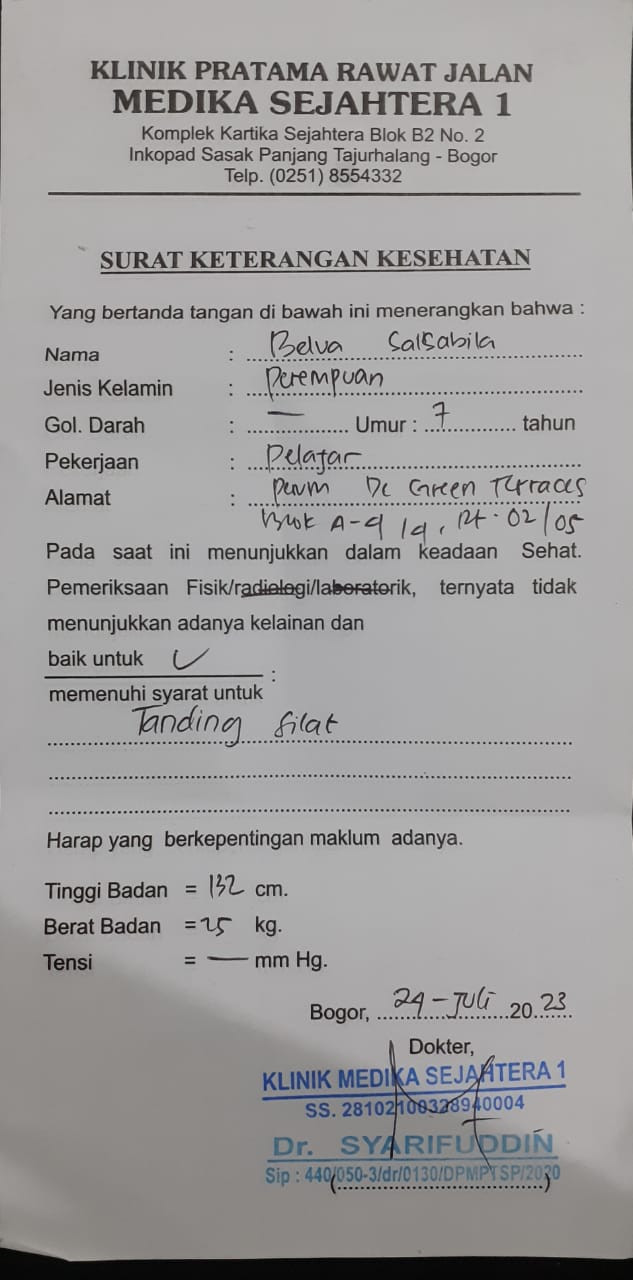 KLINIK PRATAMA RAWAT JALAN
MEDIKA SEJAHTERA 1
Komplek Kartika Sejahtera Blok B2 No. 2
Inkopad Sasak Panjang Tajurhalang - Bogor
Telp. (0251) 8554332
SURAT KETERANGAN KESEHATAN
Yang bertanda tangan di bawah ini menerangkan bahwa :
Nama : Belva Salsabila
Jenis Kelamin : Perempuan
Gol. Darah : — Umur : 7 tahun
Pekerjaan : Pelajar
Alamat : Perum De Green Terraces
Blok A-9 19, Rt. 02/05
Pada saat ini menunjukkan dalam keadaan Sehat.
Pemeriksaan Fisik/radiologi/laboratorik, ternyata tidak
menunjukkan adanya kelainan dan
baik untuk ✓
memenuhi syarat untuk :
Tanding Silat
Harap yang berkepentingan maklum adanya.
Tinggi Badan = 132 cm.
Berat Badan = 25 kg.
Tensi = — mm Hg.
Bogor, 24 - Juli 2023
Dokter,
KLINIK MEDIKA SEJAHTERA 1
SS. 28102100328940004
Dr. SYARIFUDDIN
Sip : 440/050-3/dr/0130/DPMPTSP/2020